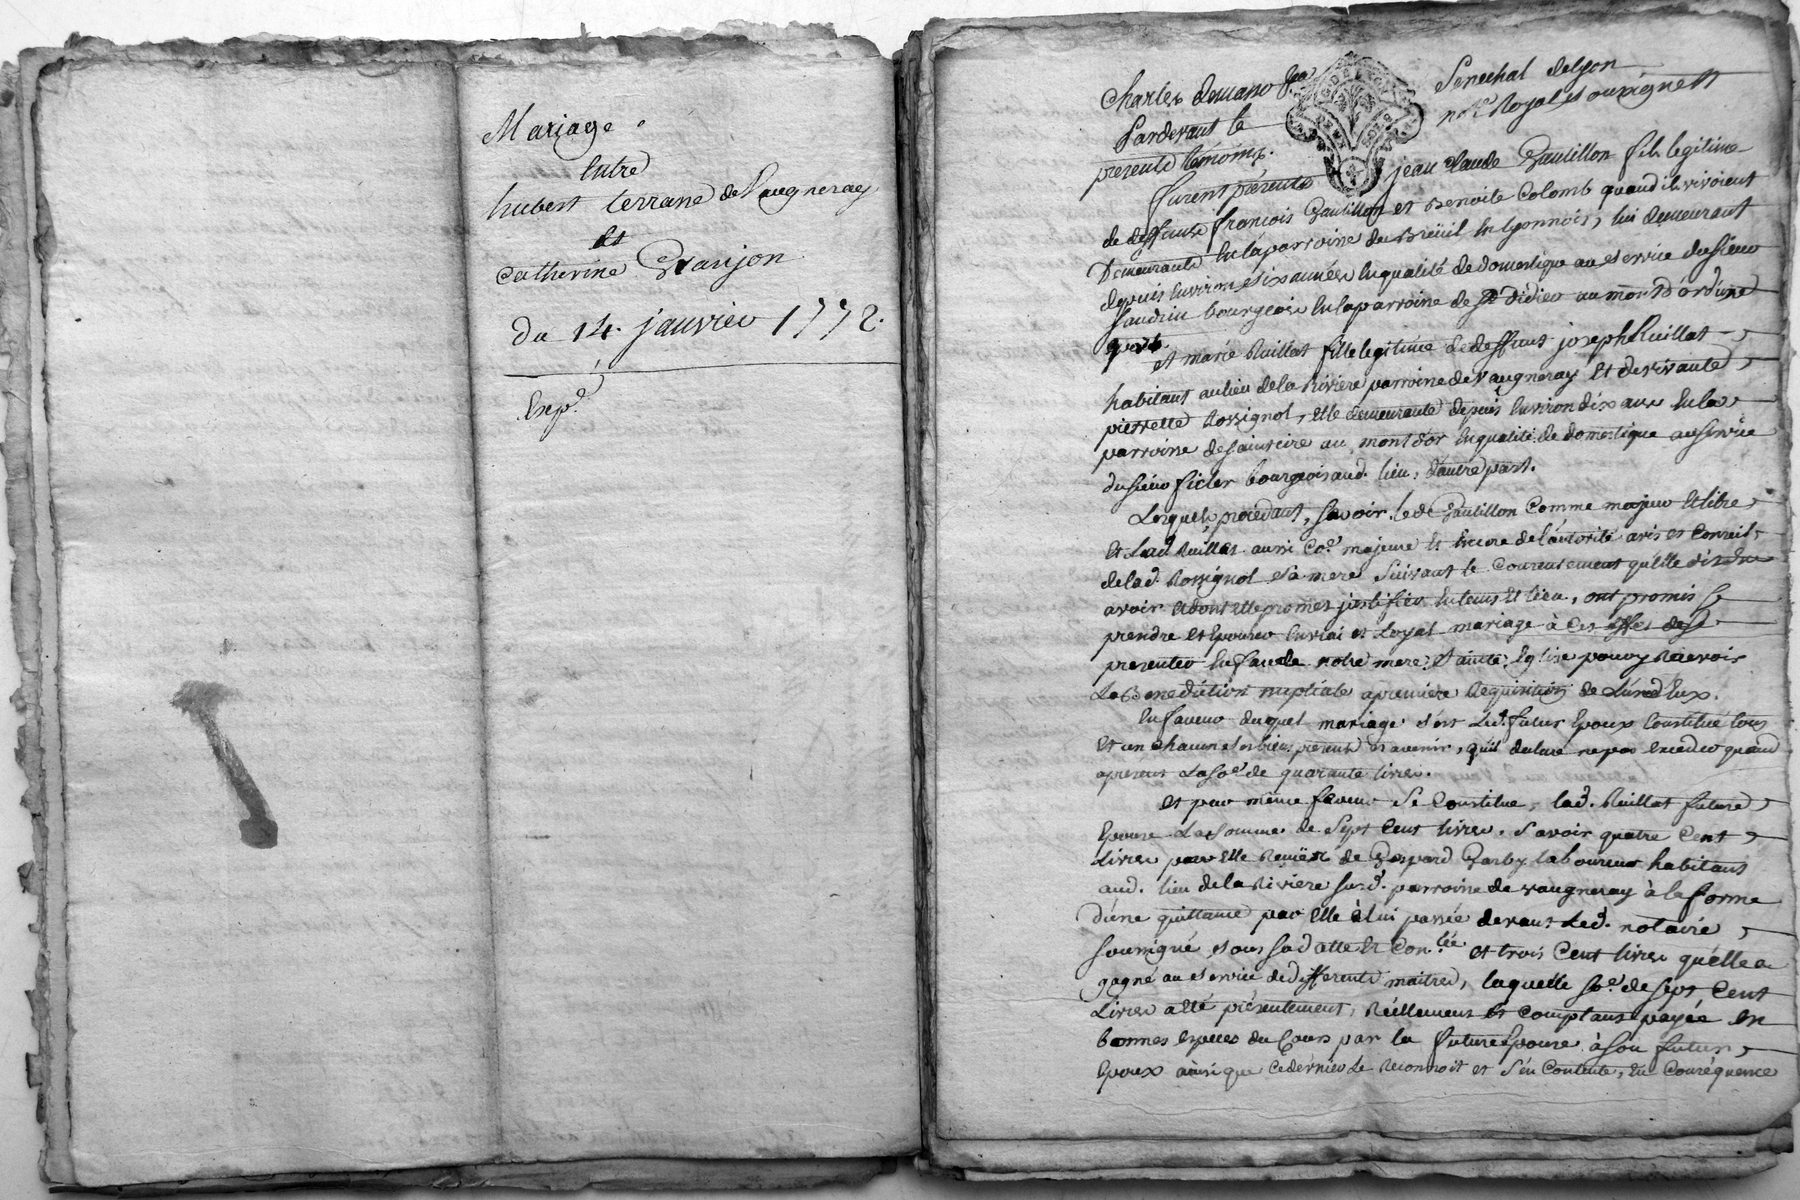 Mariage
Entre
hubert terrane de Vaugneray
Et
Catherine Granjon
du 14. janvier 1772.
Exp.é
Charles demano
Senechal delyon
Pardevant le
no.re Royal soussigné et
presents témoins.
furent présents
jean claude Gautillon fils legitime
de deffunts françois Gautillon et Benoite Colomb quand ils vivoient
Demeurants en la parroisse du Breüil en lyonnois, lui demeurant
depuis environ six années en qualité de domestique au service du sieur
bourgeois en la parroisse de St didier au mont D'or d'une
part.
et marie Ruillat fille legitime de deffunt joseph Ruillat
habitant au lieu de la Riviere parroisse de Vaugneray et de vivante
pierrette Rossignol, elle demeurante depuis environ dix ans en la
parroisse de saint cire au mont d'or en qualité de domestique au service
du sieur ficler bourgeois aud. lieu, d'autre part.
Lesquels procedant, savoir led. Gautillon comme majeur et libre
et Lad. Ruillat aussi co.e majeure et encore de l'autorité avis et conseil
de lad. Rossignol sa mere suivant le consentement qu'elle dit
avoir et dont elle promet justifier en tems et lieu, ont promis se
prendre et Epouser en vrai et Loyal mariage à ces effet de se
presenter en face de notre mere Sainte Eglise pour y Recevoir
La Benediction nuptiale a premiere Requisition de L'un d'Eux.
En faveur duquel mariage s'est Led. futur Epoux Constitué tous
et un chacun ses biens présents et avenir, qu'il declare ne pas exceder quand
apresent La so.e de quarante livres.
et par même faveur Se Constitue, lad. Ruillat future
Epouse La somme de Sept Cent livres. savoir quatre Cent
Livres par elle Reçües de Gaspard Garby laboureur habitant
aud. lieu de la Riviere sud. parroisse de vaugneray à la forme
d'une quittance par elle à lui passée devant Led. notaire
soussigné sous sa datte et con.lée et trois Cent livres qu'elle a
gagné au service de differents maitres, laquelle so.e de sept Cent
Livres a été présentement, Réellement et comptant payée en
bonnes especes du Cours par la future Epouse à son futur
Epoux ainsi que ce dérnier Le Reconnoit et s'en Contente, En Conséquence